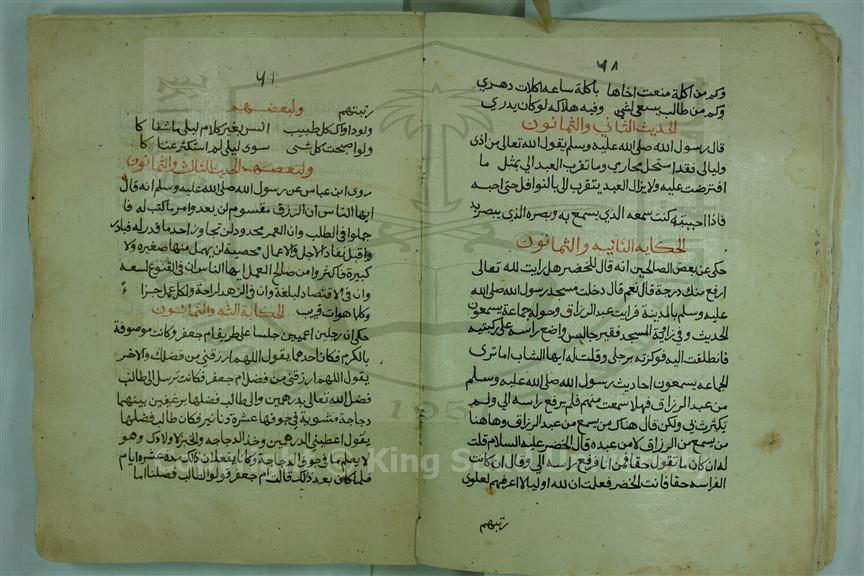 ٦٨
وكم من اكلة منعت اخاها باكلة ساعه اكلات دهري
وكم من طالب يسعى لشي وفيه هلاكه لو كان يدري
الحديث الثاني والثمانون
قال رسول الله صلى الله عليه وسلم يقول الله تعالى من اذى
وليا لي فقد استحل محاربتي وما تقرب الي العبد بمثل ما
افترضت عليه ولا يزال العبد يتقرب الي بالنوافل حتى احبه
فاذا احببته كنت سمعه الذي يسمع به وبصره الذي يبصر به
الحكايه الثانيه والثمانون
حكى عن بعض الصالحين انه قال للخضر هل رايت لله تعالى
ارفع منك درجة قال نعم قال دخلت مسجد رسول الله صلى الله
عليه وسلم بالمدينة فرايت عبد الرزاق وحوله جماعة يسمعون
الحديث وفي زاوية المسجد فقير جالس واضع راسه على ركبتيه
فانطلقت اليه فوكزته برجلي وقلت له ايها الشاب اما ترى
الجماعه يسمعون احاديث رسول الله صلى الله عليه وسلم
من عبد الرزاق فهلا سمعت منهم فلم يرفع راسه الي ولم
يكترث بي ولكن قال هناك من يسمع من عبد الرزاق وهاهنا
من يسمع من الرزاق لا من عبده قال الخضر عليه السلام قلت
له ان كان ما تقول حقا فمن انا فرفع راسه الي وقال ان كانت
الفراسه حقا فانت الخضر فعلمت ان لله اوليا لا اعرفهم لعلوى
رتبتهم
رتبتهم ولبعضهم
ولو داواك كل طبيب انس بغير كلام ليلى ما شفا كا
ولو اصبحت كل شي سوى ليلى
ولبعضهم الحديث الثالث والثمانون
روى ابن عباس عن رسول الله صلى الله عليه وسلم انه قال
ايها الناس ان الرزق مقسوم لن يعدو امر ما كتب له فا
جملوا في الطلب وان العمر محدود لن تجاوز احد ما قدر له فبادر
واقبل نفاذ الاجل والاعمال محصية لن يهمل منها صغيره ولا
كبيرة فاكثروا من صالح العمل ايها الناس ان في القنوع لسعه
وان في الاقتصاد لبلغة وان في الزهد لراحة ولكل عمل جزاء
وكلما هوات قريب الحكاية الثالثه والثمانون
حكى ان رجلين اعميين جلسا على طريق ام جعفر وكانت موصوفة
بالكرم فكان احدهما يقول اللهم ارزقني من فضلك والاخر
يقول اللهم ارزقني من فضل ام جعفر فكانت ترسل الى طالب
فضل الله تعالى بدرهمين والى طالب فضلها برغيفين بينهما
دجاجة مشوية في جوفها عشرة دنانير فكان طالب فضلها
يقول اعطيني الدرهمين وخذ الدجاجه والخبز لاولادك وهو
لا يعلم بما في جوف الدجاجة وكانا يفعلان ذلك مدة عشرة ايام
فلما كان بعد ذلك قالت ام جعفر قولوا لطالب فضلنا اما
© King Saud University
1957